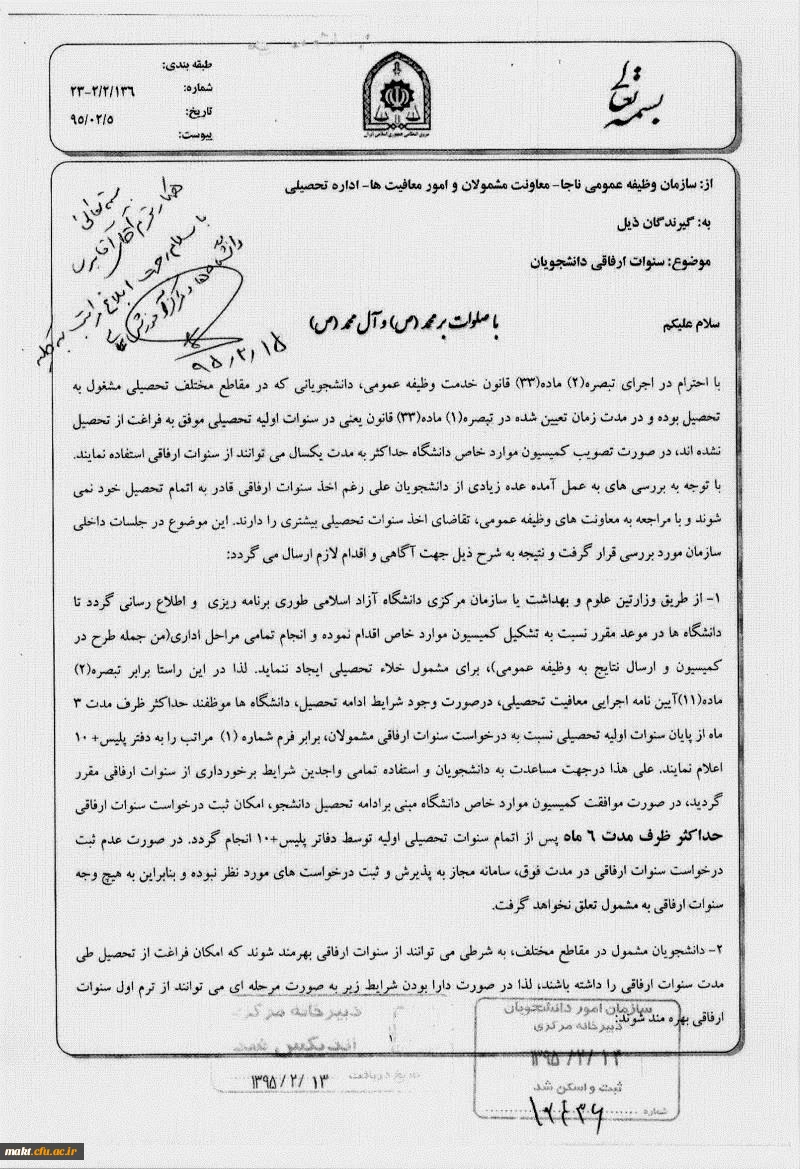 بسمه تعالی
طبقه بندی:
شماره: ۲۳-۲/۲/۱۳۶
تاریخ: ۹۵/۰۲/۵
پیوست:
نیروی انتظامی جمهوری اسلامی ایران
از: سازمان وظیفه عمومی ناجا- معاونت مشمولان و امور معافیت ها- اداره تحصیلی
به: گیرندگان ذیل
موضوع: سنوات ارفاقی دانشجویان
سلام علیکم
با صلوات بر محمد (ص) و آل محمد (ص)
بسمه تعالی
با سلام
۹۵/۲/۱۵
با احترام در اجرای تبصره(۲) ماده(۳۳) قانون خدمت وظیفه عمومی، دانشجویانی که در مقاطع مختلف تحصیلی مشغول به
تحصیل بوده و در مدت زمان تعیین شده در تبصره(۱) ماده(۳۳) قانون یعنی در سنوات اولیه تحصیلی موفق به فراغت از تحصیل
نشده اند، در صورت تصویب کمیسیون موارد خاص دانشگاه حداکثر به مدت یکسال می توانند از سنوات ارفاقی استفاده نمایند.
با توجه به بررسی های به عمل آمده عده زیادی از دانشجویان علی رغم اخذ سنوات ارفاقی قادر به اتمام تحصیل خود نمی
شوند و با مراجعه به معاونت های وظیفه عمومی، تقاضای اخذ سنوات تحصیلی بیشتری را دارند. این موضوع در جلسات داخلی
سازمان مورد بررسی قرار گرفت و نتیجه به شرح ذیل جهت آگاهی و اقدام لازم ارسال می گردد:
۱- از طریق وزارتین علوم و بهداشت یا سازمان مرکزی دانشگاه آزاد اسلامی طوری برنامه ریزی و اطلاع رسانی گردد تا
دانشگاه ها در موعد مقرر نسبت به تشکیل کمیسیون موارد خاص اقدام نموده و انجام تمامی مراحل اداری(من جمله طرح در
کمیسیون و ارسال نتایج به وظیفه عمومی)، برای مشمول خلاء تحصیلی ایجاد ننماید. لذا در این راستا برابر تبصره(۲)
ماده(۱۱)آیین نامه اجرایی معافیت تحصیلی، درصورت وجود شرایط ادامه تحصیل، دانشگاه ها موظفند حداکثر ظرف مدت ۳
ماه از پایان سنوات اولیه تحصیلی نسبت به درخواست سنوات ارفاقی مشمولان، برابر فرم شماره (۱) مراتب را به دفتر پلیس+ ۱۰
اعلام نمایند. علی هذا درجهت مساعدت به دانشجویان و استفاده تمامی واجدین شرایط برخورداری از سنوات ارفاقی مقرر
گردید، در صورت موافقت کمیسیون موارد خاص دانشگاه مبنی برادامه تحصیل دانشجو، امکان ثبت درخواست سنوات ارفاقی
حداکثر ظرف مدت ۶ ماه پس از اتمام سنوات تحصیلی اولیه توسط دفاتر پلیس+۱۰ انجام گردد. در صورت عدم ثبت
درخواست سنوات ارفاقی در مدت فوق، سامانه مجاز به پذیرش و ثبت درخواست های مورد نظر نبوده و بنابراین به هیچ وجه
سنوات ارفاقی به مشمول تعلق نخواهد گرفت.
۲- دانشجویان مشمول در مقاطع مختلف، به شرطی می توانند از سنوات ارفاقی بهرمند شوند که امکان فراغت از تحصیل طی
مدت سنوات ارفاقی را داشته باشند، لذا در صورت دارا بودن شرایط زیر به صورت مرحله ای می توانند از ترم اول سنوات
ارفاقی بهره مند شوند:
۱
سازمان امور دانشجویان
دبیرخانه مرکزی
۱۳۹۵/۲/۱۴
ثبت و اسکن شد
شماره
دبیرخانه مرکزی
اندیکس شد
تاریخ دریافت
۱۳۹۵/۲/۱۳
makt.cfu.ac.ir